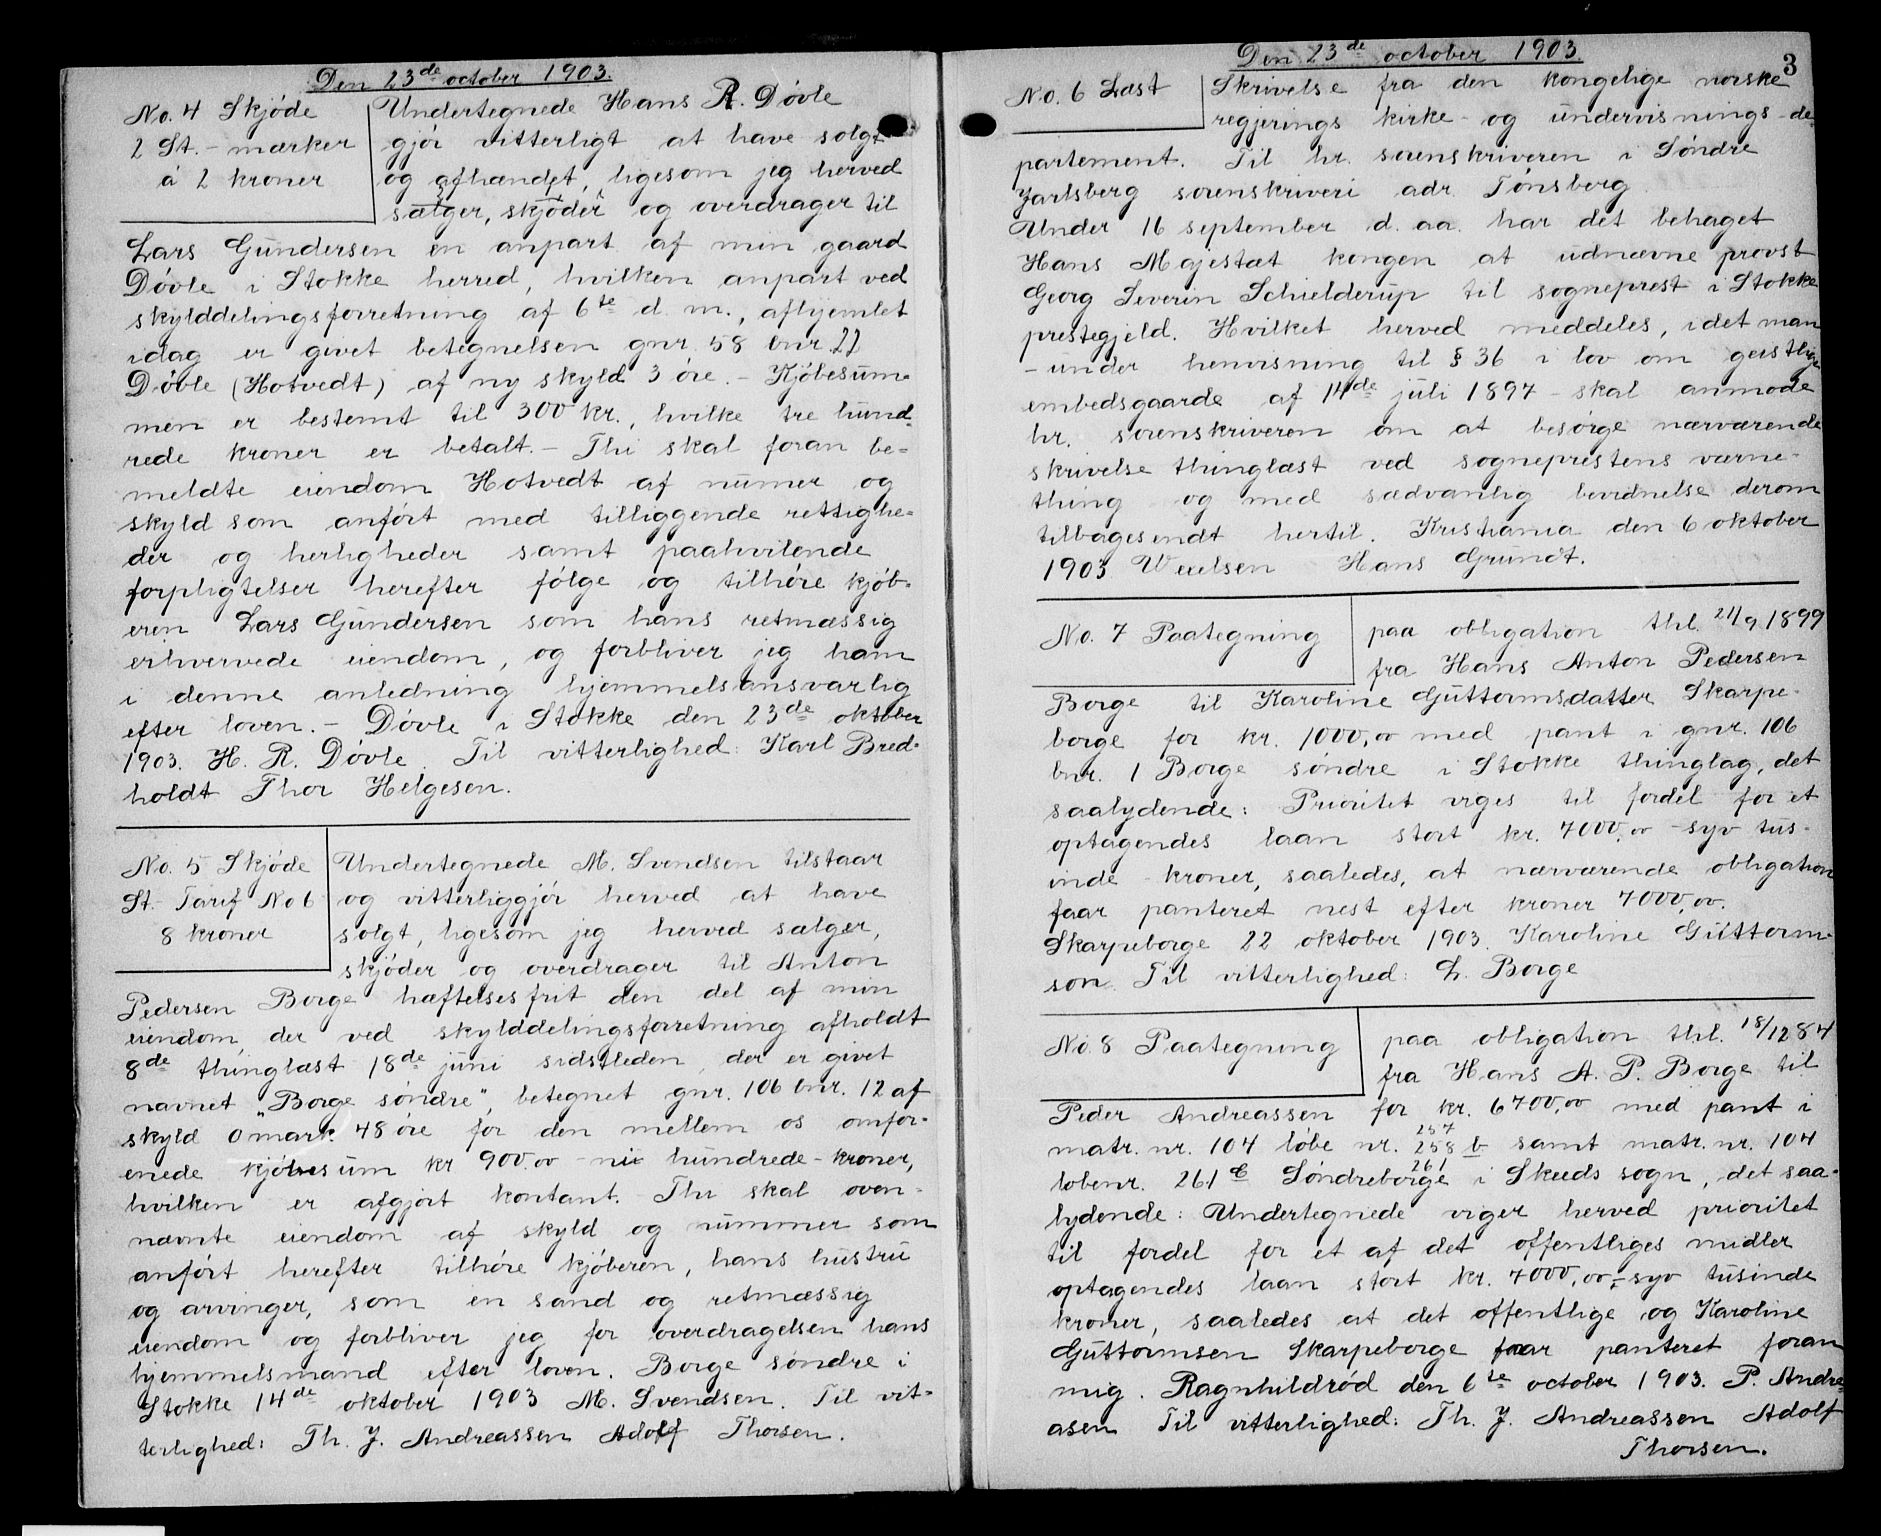 Den 23de october 1903.
No. 4 Skjøde
2 St. - mærker
á 2 kroner
Undertegnede Hans R. Døvle
gjør vitterligt at have solgt
og afhændet, ligesom jeg herved
sælger, skjøder og overdrager til
Lars Gundersen en anpart af min gaard
Døvle i Stokke herred, hvilken anpart ved
skylddelingsforretning af 6te d. m., afhjemlet
idag er givet betegnelsen gnr. 58 bnr 22
Døvle (Hotvedt) af ny skyld 3 øre. - Kjøbesum-
men er bestemt til 300 kr., hvilke tre hund-
rede kroner er betalt. - Thi skal foran be=
meldte eiendom Hotvedt af numer og
skyld som anført med tilliggende rettighe=
der og herligheder samt paahvilende
forpligtelser herefter følge og tilhøre kjøb-
eren Lars Gundersen som hans retmæssig
erhvervede eiendom, og forbliver jeg ham
i denne anledning hjemmelsansvarlig
efter loven. - Døvle i Stokke den 23de oktober
1903. H. R. Døvle. Til vitterlighed: Karl Bred-
holdt Thor Helgesen.
No. 5 Skjøde
St. Tarif No 6
8 kroner
Undertegnede M. Svendsen tilstaar
og vitterliggjør herved at have
solgt, ligesom jeg herved sælger,
skjøder og overdrager til Anton
Pedersen Borge hæftelsesfrit den del af min
eiendom, der ved skylddelingsforretning afholdt
8de thinglæst 18de juni sidstleden, der er givet
navnet „Borge søndre", betegnet gnr. 106 bnr. 12 af
skyld 0 mark 48 øre for den mellem os omfor-
enede kjøbesum kr 900.00 - ni hundrede - kroner,
hvilken er afgjort kontant. Thi skal oven-
nævnte eiendom af skyld og nummer som
anført herefter tilhøre kjøberen, hans hustru
og arvinger, som en sand og retmæssig
eiendom og forbliver jeg for overdragelsen hans
hjemmelsmand efter loven. Borge søndre i
Stokke 14de oktober 1903 M. Svendsen. Til vit-
terlighed: Th. J. Andreassen Adolf Thorsen.
Den 23de october 1903.
3
No. 6 Læst
Skrivelse fra den kongelige norske
regjerings kirke - og undervisnings - de=
partement. Til hr. sorenskriveren i Søndre
Jarlsberg sorenskriveri adr Tønsberg.
Under 16 september d. aa. har det behaget
Hans Majestæt kongen at udnævne provst
Georg Severin Schielderup til sogneprest i Stokke
prestegjeld. Hvilket herved meddeles, idet man
- under henvisning til § 36 i lov om geistlige
embedsgaarde af 14de juli 1897 - skal anmode
hr. sorenskriveren om at besørge nærværende
skrivelse thinglæst ved sogneprestens værne-
thing og med sædvanlig bevidnelse derom
tilbagesendt hertil. Kristiania den 6 oktober
1903 Wexelsen Hans Grundt.
No. 7 Paategning
paa obligation thl. 21/9 1899
fra Hans Anton Pedersen
Borge til Karoline Guttormsdatter Skarpe-
borge for kr. 1000,00 med pant i gnr. 106
bnr. 1 Borge søndre i Stokke thinglag, det
saalydende: Prioritet viges til fordel for et
optagendes laan stort kr. 7000,00 - syv tus-
inde - kroner, saaledes, at nærværende obligation
faar panteret nest efter kroner 7000,00.
Skarpeborge 22 oktober 1903. Karoline Guttorm-
son. Til vitterlighed: L. Borge
No. 8 Paategning
paa obligation thl. 18/12 84
fra Hans A. P. Borge til
Peder Andreassen for kr. 6700,00 med pant i
matr. nr. 104 løbe nr. 257 258 b samt matr. nr. 104
løbenr. 261 c 261 Søndreborge i Skeeds sogn, det saa-
lydende: Undertegnede viger herved prioritet
til fordel for et af det offentliges midler
optagendes laan stort kr. 7000,00,- syv tusinde
kroner, saaledes at det offentlige og Karoline
Guttormsen Skarpeborge faar panteret foran
mig. Ragnhildrød den 6te october 1903. P. Andre-
asen Til vitterlighed: Th. J. Andreassen Adolf
Thorsen.